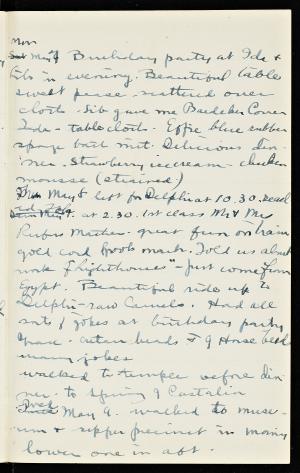 Mon
May 7 Birthday party at Ida &
Lib's in evening. Beautiful table
sweet pease - scattered over
cloth. Sib gave me Baedeker Cover
Ida - table cloth. Effie blue rubber
sponge bath mit. Delicious din-
ner. Strawberry ice cream - chicken
mousse (strained)
May 8 left for Delphi at 10.30. reach
at 2.30. 1st class Mr & Mrs
Rufus Mather - great fun on train
gold cord book mark. Told us about
work "Lighthouses" - just come from
Egypt. Beautiful ride up to
Delphi - saw Camels. Had all
sorts of jokes at birthday party
beads & J horse
many jokes
walked to temple before din-
ner - to Spring of Castalia
Wed May 9. walked to muse-
um & upper precinct in morning
lower one in aft.